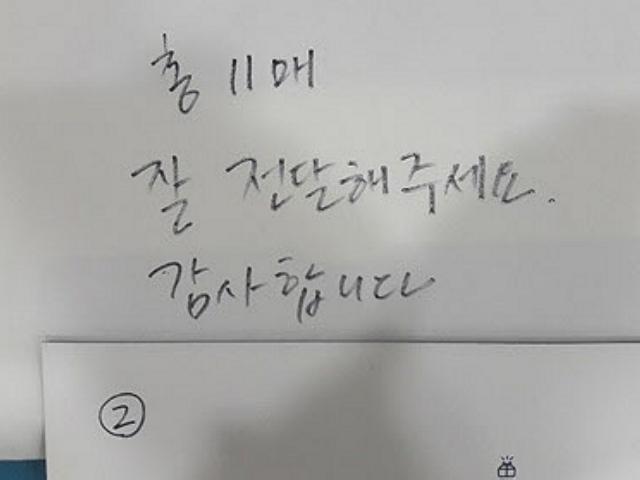 총 11매
잘 전달해주세요.
감사합니다
②